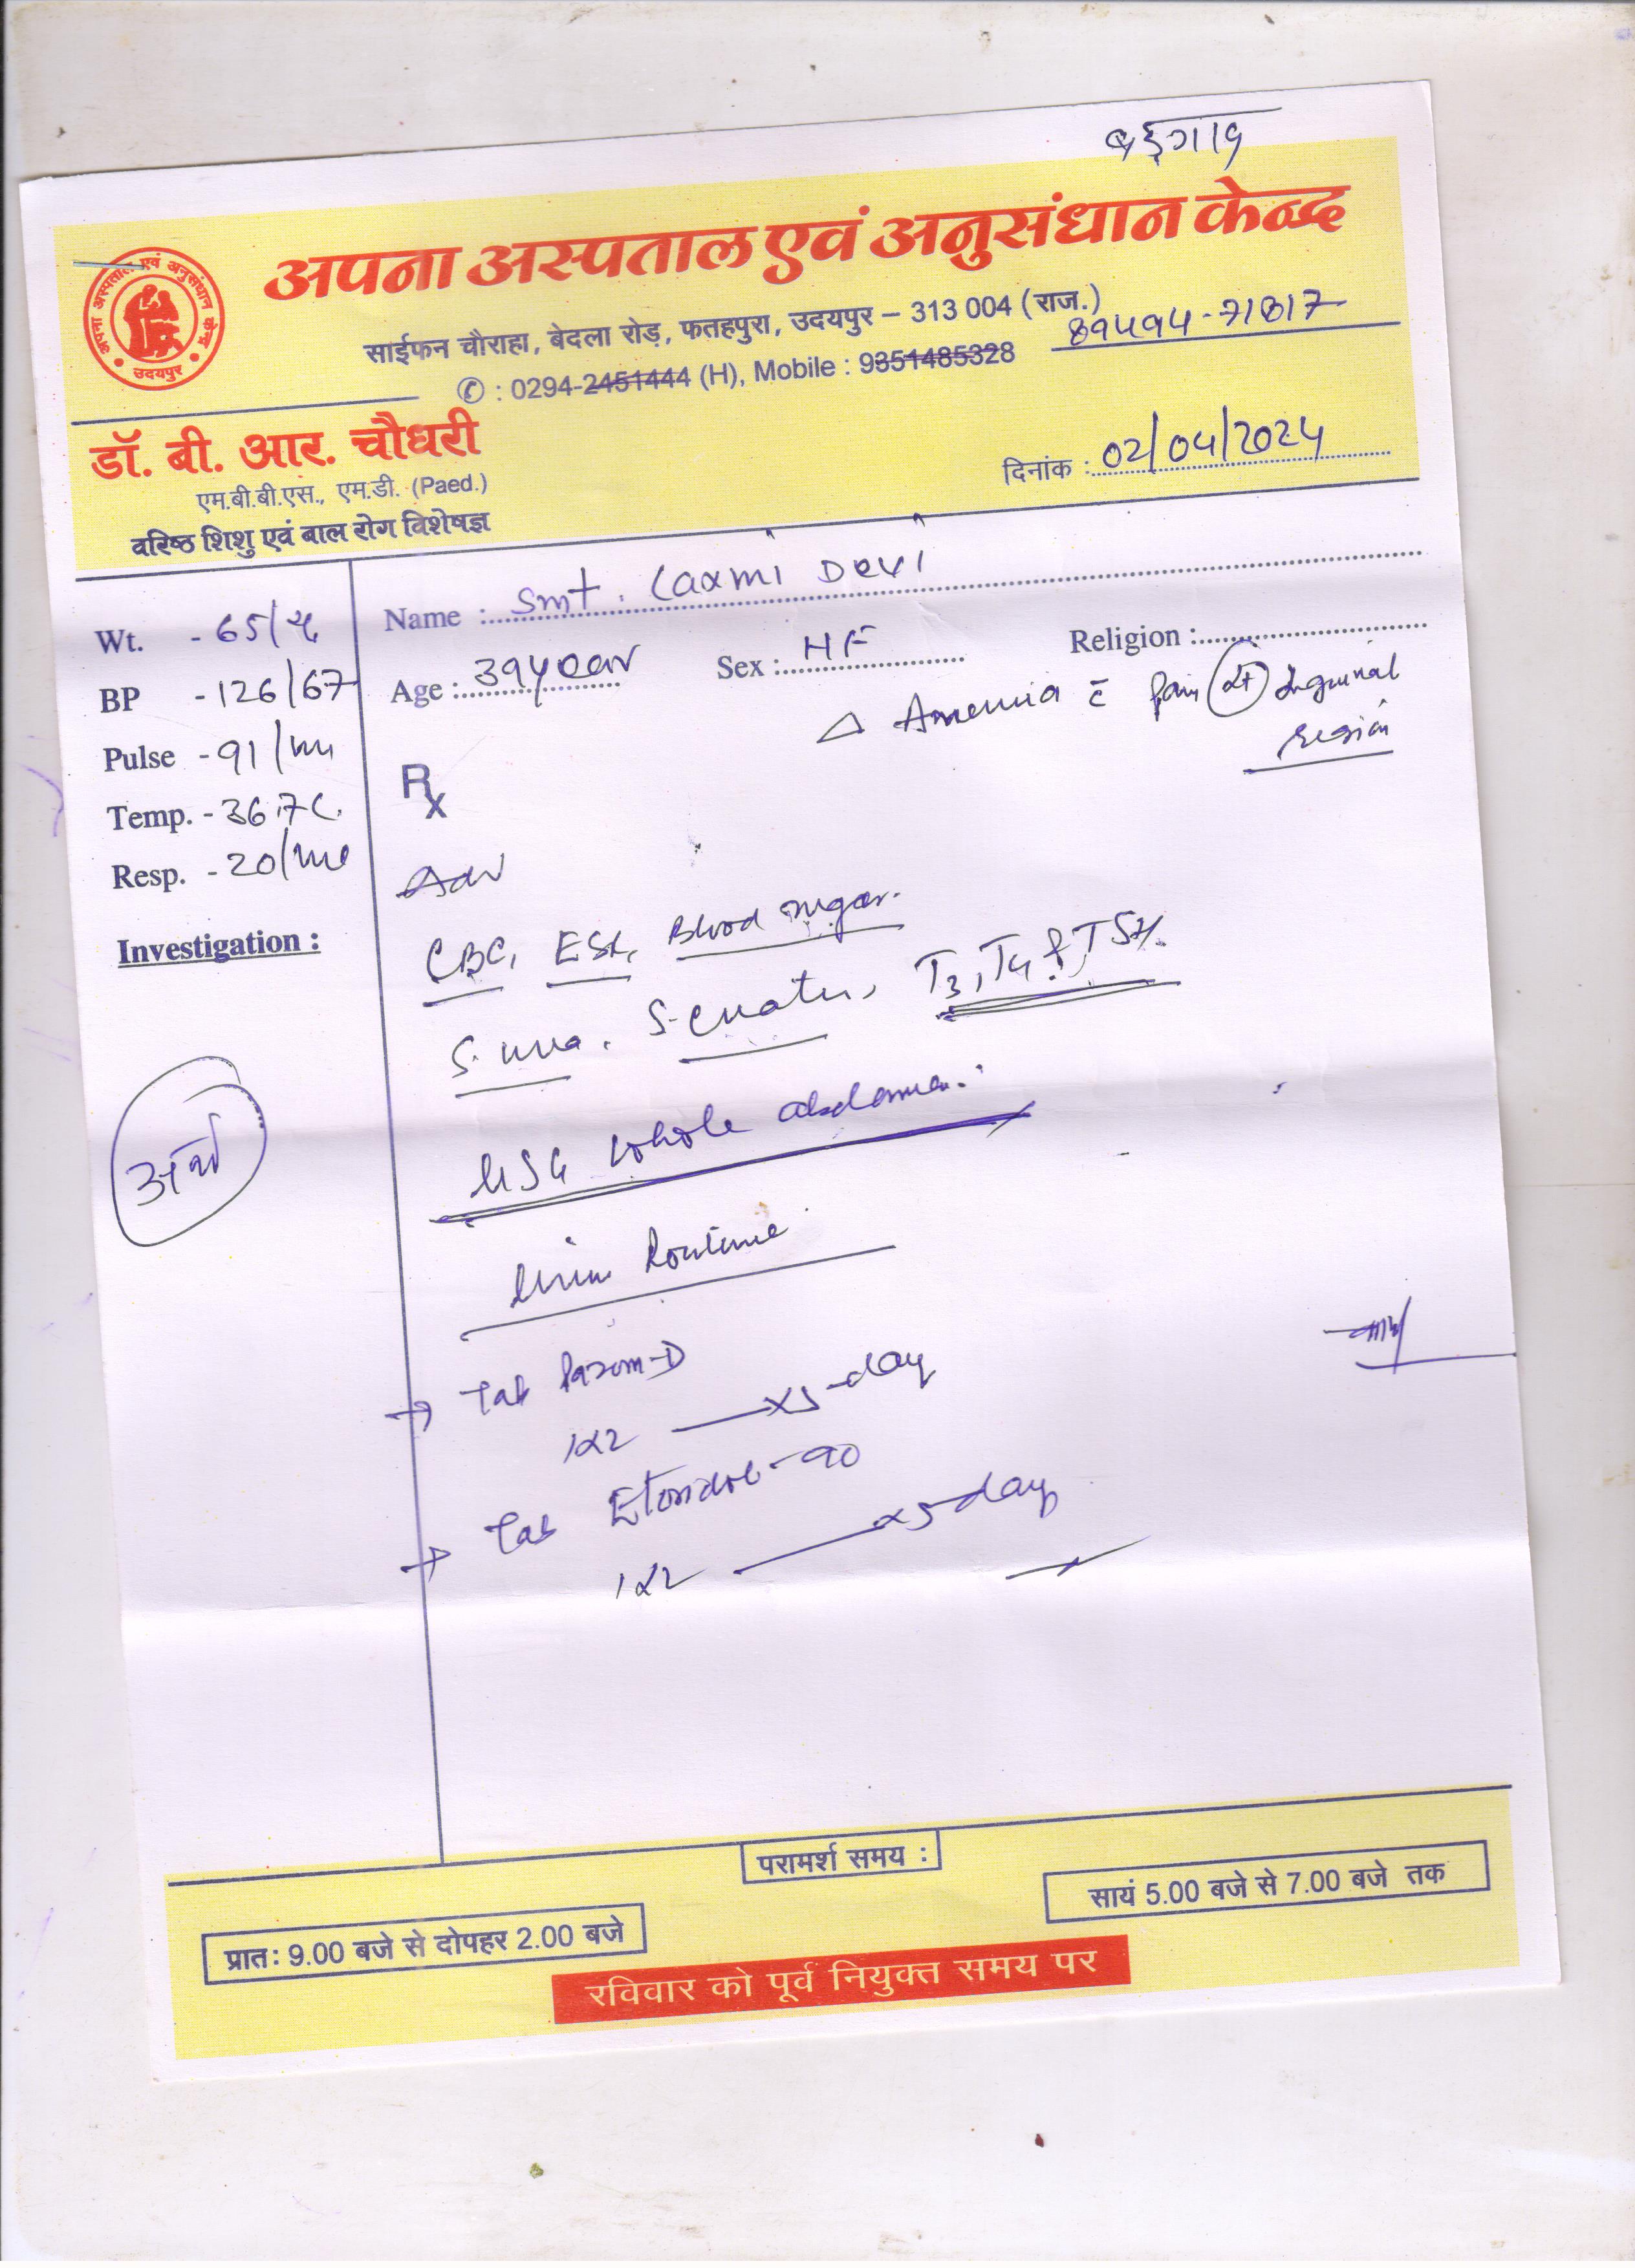 बड़गांव
अपना अस्पताल एवं अनुसंधान केन्द्र
साईफन चौराहा, बेदला रोड़, फतहपुरा, उदयपुर – 313 004 (राज.)
89494-71817
✆ : 0294-2451444 (H), Mobile : 9351485328
अपना अस्पताल एवं अनुसंधान केन्द्र
उदयपुर
डॉ. बी. आर. चौधरी
एम.बी.बी.एस., एम.डी. (Paed.)
वरिष्ठ शिशु एवं बाल रोग विशेषज्ञ
दिनांक : 02/04/2024
Name : Smt. Laxmi Devi
Age : 39 year Sex : HF Religion :
Wt. - 65/
BP - 126/67
Pulse - 91/
Temp. - 36.7 C.
Resp. - 20/
Investigation :
△ Anemia c̄ Pain Inguinal
region
Rx
Adv
CBC, ESR, Blood sugar.
S. urea, S. creatin, T3, T4 & TSH.
USG whole abdomen.
Urine Routine
→ Tab Pazom-D
1x2 —x5-day
→ Tab Etordol-90
1x2 —x5-day
परामर्श समय :
प्रातः 9.00 बजे से दोपहर 2.00 बजे
सायं 5.00 बजे से 7.00 बजे तक
रविवार को पूर्व नियुक्त समय पर